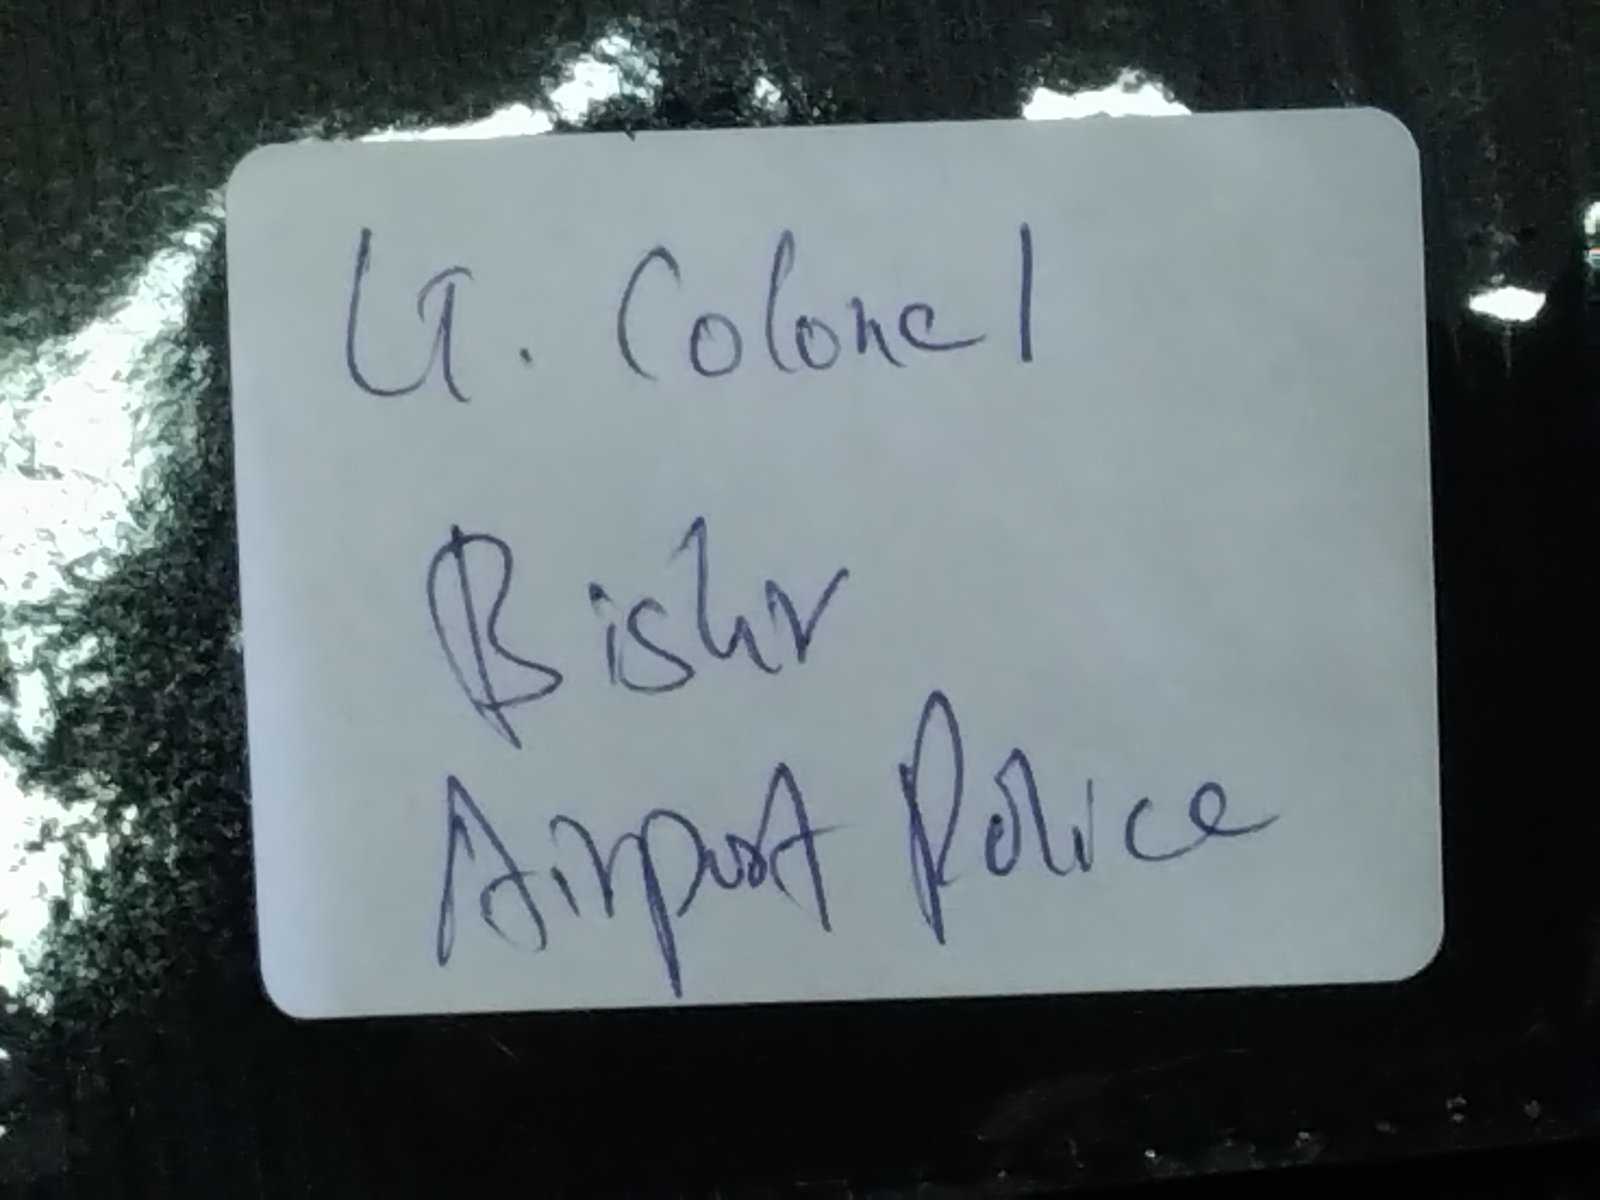 Lt. Colonel
Bishr
Airport Police